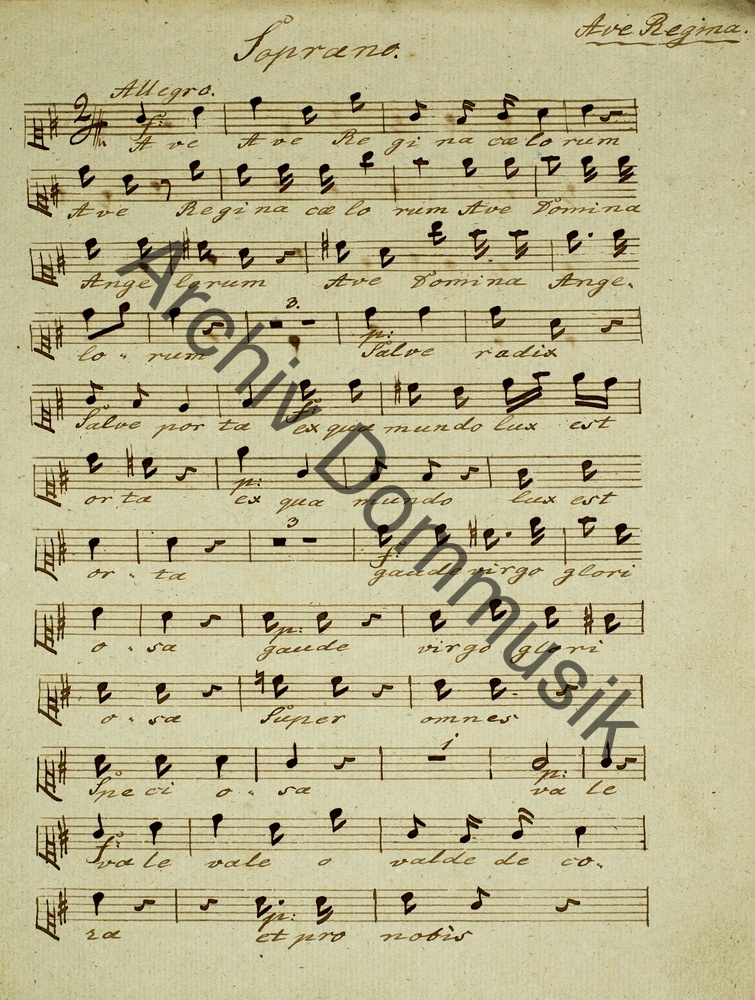 Ave Regina.
Soprano.
Allegro.
f:
A ve A ve Re gi na cœ lo rum
Ave Regina cœ lo rum Ave Domina
Ange lorum Ave Domina Ange-
3.
p:
lo - rum Salve radix
Salve por ta ex qua mundo lux est
p:
or ta ex qua mundo lux est
3
f.
or - ta gaude virgo glori
p:
o - sa gaude virgo glori
o - sa Super omnes
1
p:
Spe ci o - sa va le
f:
va le vale o valde de co-
p:
ra et pro nobis
Archiv Dommusik